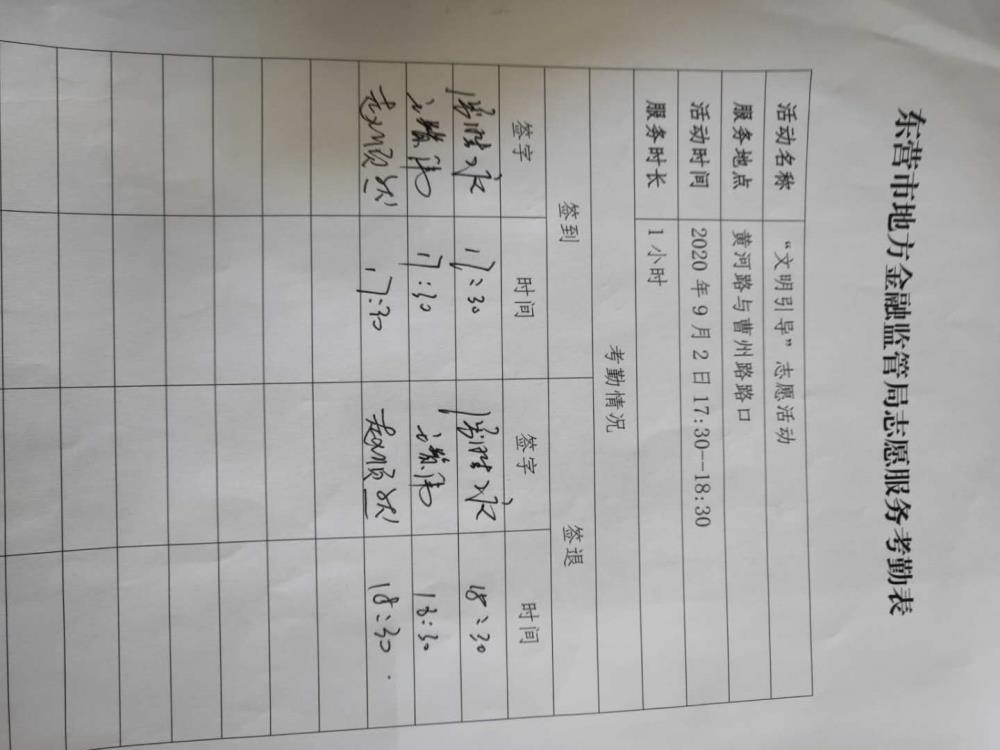 东营市地方金融监管局志愿服务考勤表
活动名称 “文明引导”志愿活动
服务地点 黄河路与曹州路路口
活动时间 2020年9月2日17:30--18:30
服务时长 1小时
考勤情况
签到 签退
签字 时间 签字 时间
17:30 18:30
17:30 18:30
17:30 18:30